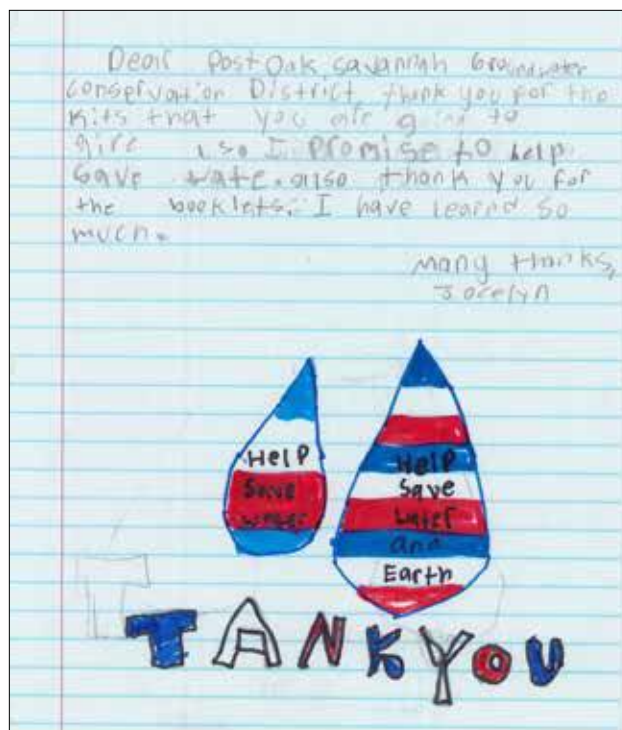 Dear Post Oak Savannah Groundwater
Conservation District, thank you for the
Kits that you are going to
give , so I promise to help
save wate. also thank you for
the booklets. I have learnd so
much.
Many thanks,
Jocelyn
Help
Save
water
Help
Save
Water
and
Earth
TANKYOU